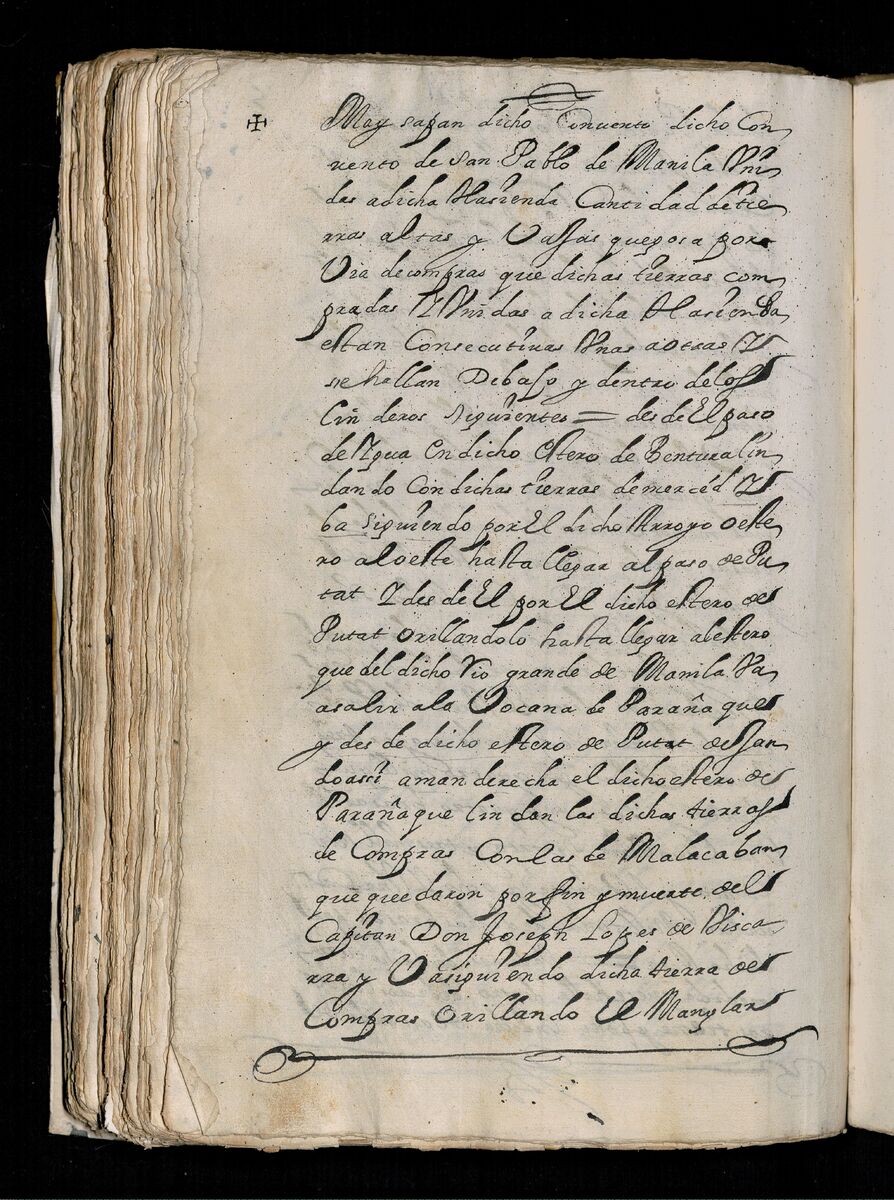 ✠ May sapan dicho Conuento dicho Con
uento de san Pablo de Manila Vni
das adicha Hasienda Cantidad de tie
rras altas y Vassas que posa por
Via de compras que dichas tierras com
pradas Y Vnidas a dicha Hasienda
estan Consecutiuas Vnas aotras Y
se hallan Debaso y dentro delos
Linderos siguientes = desde El paso
de Agua En dicho estero de Bentura lin
dando Con dichas tierras de merced Y
ba siguiendo por El dicho Arroyo o este
ro al oeste hasta llegar al paso de Pu
tat Y desde El por El dicho estero de
Putat orillandolo hasta llegar al estero
que del dicho rio grande de Manila Va
asalir ala Vocana de Parañaque
y desde dicho estero de Putat dessan
do assi aman derecha el dicho estero de
Parañaque lindan las dichas tierras
de Compras Con las de Malacaban
que quedaron por fin y muerte del
Capitan Don Joseph Lopes de Visca
rra y Va siguiendo dicha tierra de
Compras orillando El Manglar